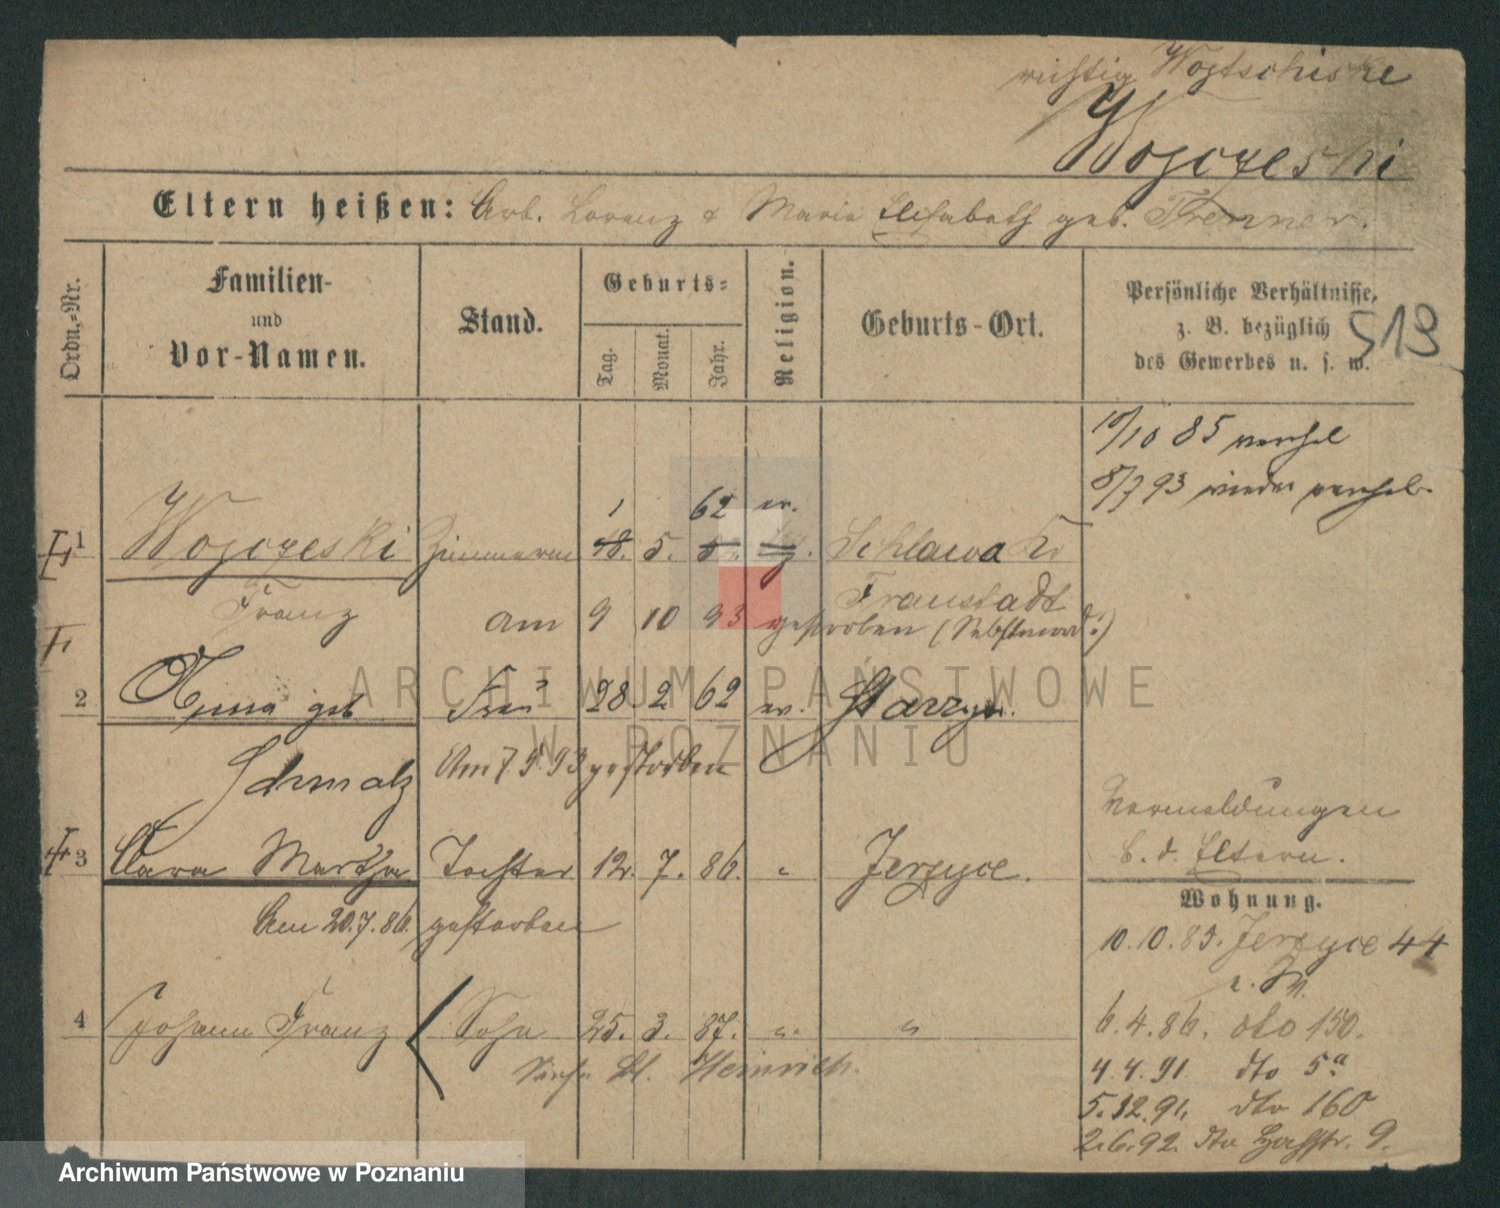 richtig Woztschiske
Wojczeski
Eltern heißen: Arb. Lorenz & Maria Elisabeth geb. Frenner.
Ordn.-Nr.
Familien-
und
Vor-Namen.
Stand.
Geburts-
Tag.
Monat.
Jahr.
Religion.
Geburts-Ort.
Persönliche Verhältnisse,
z. B. bezüglich
des Gewerbes u. s. w.
519
10/10 85 verehel
8/7 93 wieder verehel.
1 62 ev.
1 Wojczeski Zimmerm 18. 5. Schlawa Kr
Franz Fraustadt
am 9 10 93 gestorben (Selbstmord!)
2 Anna geb Frau 28 2 62 ev. Starzyn.
Schmalz Am 7.5.93 gestorben
3 Clara Martha Tochter 12. 7. 86. " Jerzyce.
Am 20.7.86. gestorben
4 Johann Franz Sohn 25. 3. 87. " "
Siehe Bl. Heinrich.
Vormeldungen
b. d. Eltern.
Wohnung.
10.10.85. Jerzyce 44
6.4.86. dto 150.
4.4.91. dto 5a
5.12.91. dto 160
2.6.92. dto Hofstr. 9.
ARCHIWUM PAŃSTWOWE
W POZNANIU
Archiwum Państwowe w Poznaniu